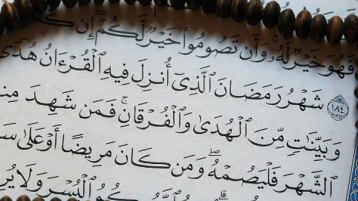 فَهُوَ خَيْرٌ لَّهُۥ ۚ وَأَن تَصُومُوا۟ خَيْرٌ لَّكُمْ ۖ إِن كُ
١٨٤ شَهْرُ رَمَضَانَ ٱلَّذِىٓ أُنزِلَ فِيهِ ٱلْقُرْءَانُ هُدًى
وَبَيِّنَٰتٍ مِّنَ ٱلْهُدَىٰ وَٱلْفُرْقَانِ ۚ فَمَن شَهِدَ مِن
ٱلشَّهْرَ فَلْيَصُمْهُ ۖ وَمَن كَانَ مَرِيضًا أَوْ عَلَىٰ سَ
ٱلْيُسْرَ وَلَا يُرِ